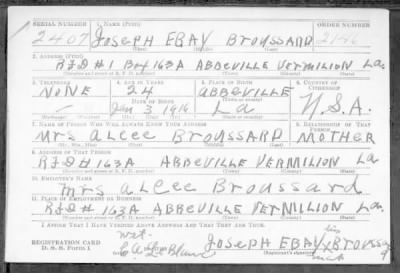 SERIAL NUMBER 1. NAME (Print) ORDER NUMBER
2407 JOSEPH EBAY BROUSSARD
(First) (Middle) (Last)
2. ADDRESS (Print)
RFD #1 Box 163A ABBEVILLE VERMILION La.
3. TELEPHONE 4. AGE IN YEARS 5. PLACE OF BIRTH 6. COUNTRY OF CITIZENSHIP
NONE 24 ABBEVILLE
DATE OF BIRTH
Jan 3 1916 La U.S.A.
7. NAME OF PERSON WHO WILL ALWAYS KNOW YOUR ADDRESS 8. RELATIONSHIP OF THAT PERSON
Mrs ALCEE BROUSSARD MOTHER
9. ADDRESS OF THAT PERSON
RFD# 163A ABBEVILLE VERMILION La
10. EMPLOYER'S NAME
Mrs ALCEE Broussard
11. PLACE OF EMPLOYMENT OR BUSINESS
RFD# 163A ABBEVILLE VERMILION La
I AFFIRM THAT I HAVE VERIFIED ABOVE ANSWERS AND THAT THEY ARE TRUE.
his
JOSEPH EBAY X Broussard
mark
REGISTRATION CARD
D. S. S. Form 1